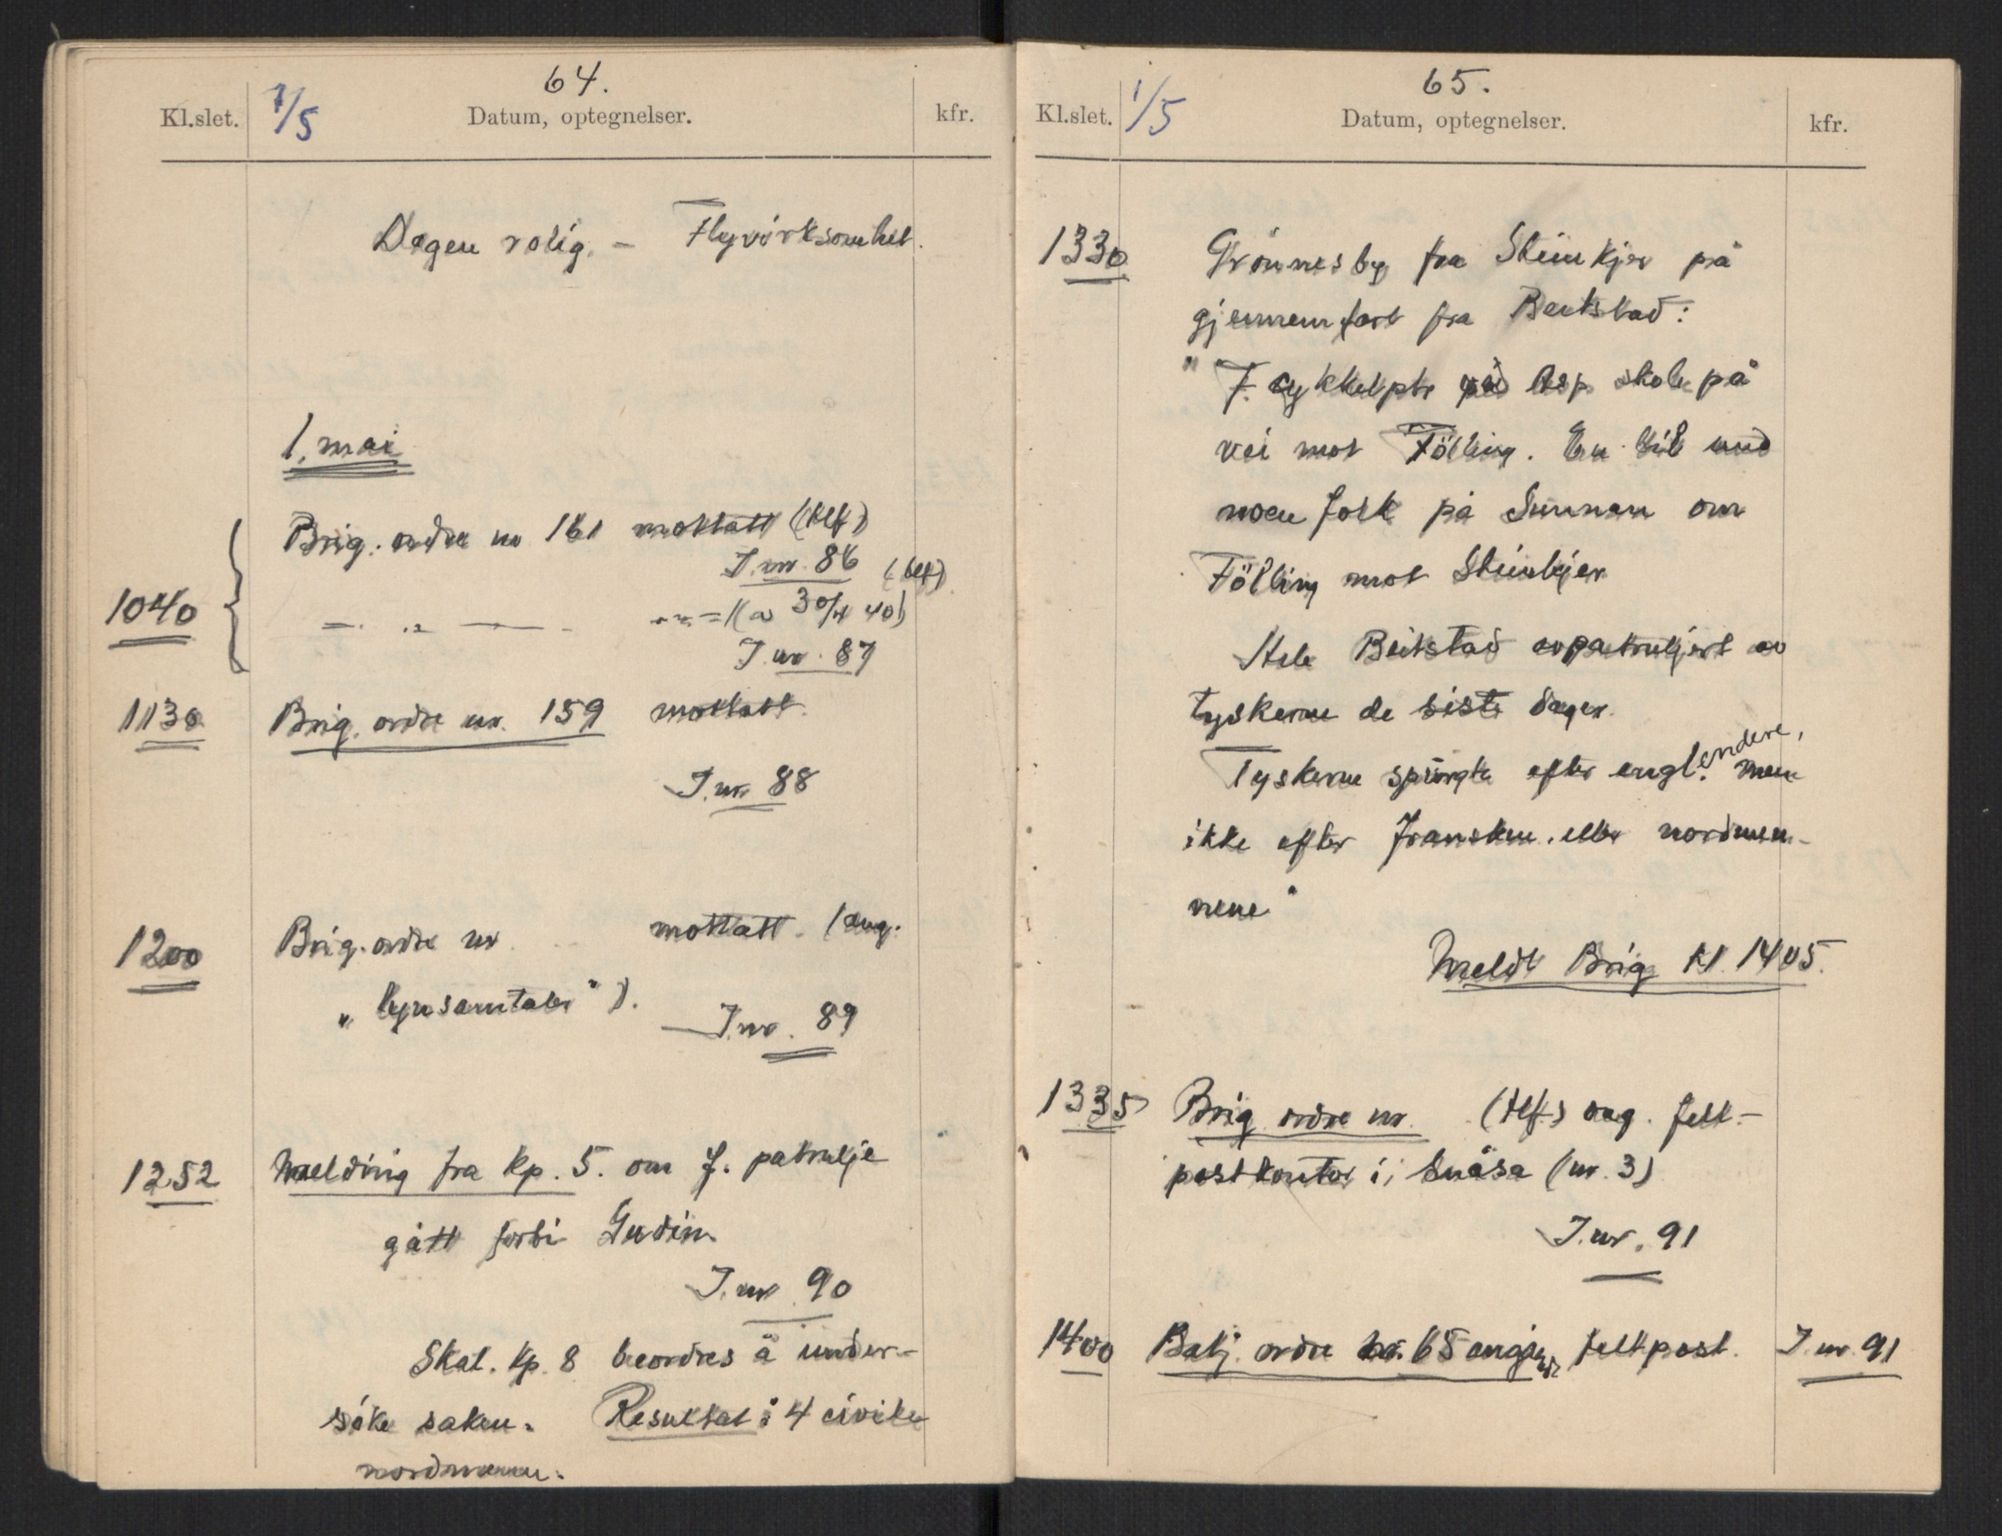 64.
Kl.slet. 1/5 Datum, optegnelser. kfr.
Dagen rolig. – Flyvirksomhet.
1. mai
Brig. ordre nr 161 mottatt (tlf)
J. nr. 86 (tlf)
1040
30/4 40)
J. nr. 87
1130 Brig. ordre nr. 159 mottatt.
J. nr 88
1200 Brig. ordre nr mottatt. (ang.
"lynsamtaler").
J. nr. 89
1252 Melding fra Kp. 5. om f. patrulje
gått forbi Gudin.
J. nr 90
Skal. Kp. 8 beordres å under-
söke saken. Resultat: 4 civile
nordmenn.
65.
Kl.slet. 1/5 Datum, optegnelser. kfr.
1330 Grönnesby fra Steinkjer på
gjennemfart fra Beitstad:
"F. cykkelptr ved Asp skole på
vei mot Fölling. En bil med
noen folk på Sunnan om
Fölling mot Steinkjer
Hele Beitstad avpatruljert av
tyskerne de siste dager.
Tyskerne spurgte efter englendere, men
ikke efter franskm. eller nordmen-
nene"
Meldt Brig kl. 1405.
1335 Brig ordre nr. (tlf.) ang. felt-
postkontor i Snåsa (nr. 3)
J. nr. 91
1400 Batj. ordre nr. 65 angående feltpost. J. nr 91